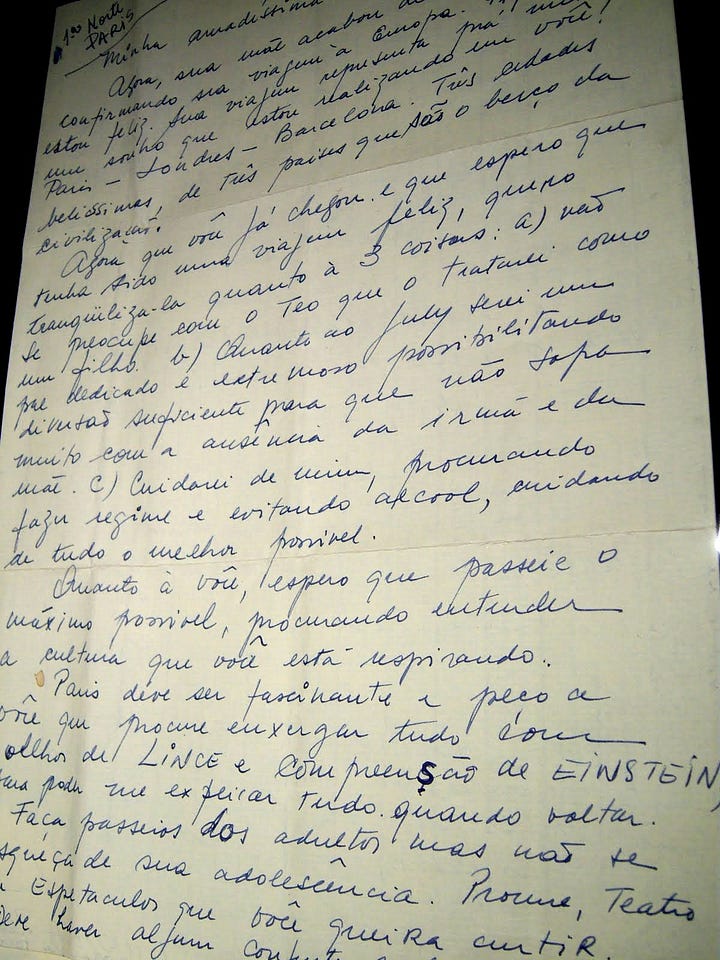 1ª Norte
PARIS
Minha amadíssima
Agora, sua mãe acabou de
confirmando sua viagem à Europa.
estou feliz. Sua viagem representa prá mim
um sonho que estou realizando em você!
Paris – Londres – Barcelona. Três cidades
belíssimas, de três países que são o berço da
civilização.
Agora que você já chegou e que espero que
tenha sido uma viagem feliz, quero
tranqüiliza-la quanto à 3 coisas: a) não
se preocupe com o Teo que o tratarei como
um filho. b) Quanto ao July serei um
pae dedicado e extremoso possibilitando
diversão suficiente para que não sofra
muito com a ausência da irmã e da
mãe. C) Cuidarei de mim, procurando
fazer regime e evitando alcool, cuidando
de tudo o melhor possível.
Quanto à você, espero que passeie o
máximo possível, procurando entender
a cultura que você está respirando..
Paris deve ser fascinante e peço a
você que procure enxergar tudo com
olhos de LINCE e compreensão de EINSTEIN,
para poder me expeicar tudo quando voltar.
Faça passeios dos adultos mas não se
esqueça de sua adolescência. Procure, Teatro
e Espetaculos que você queira curtir.
Deve haver algum